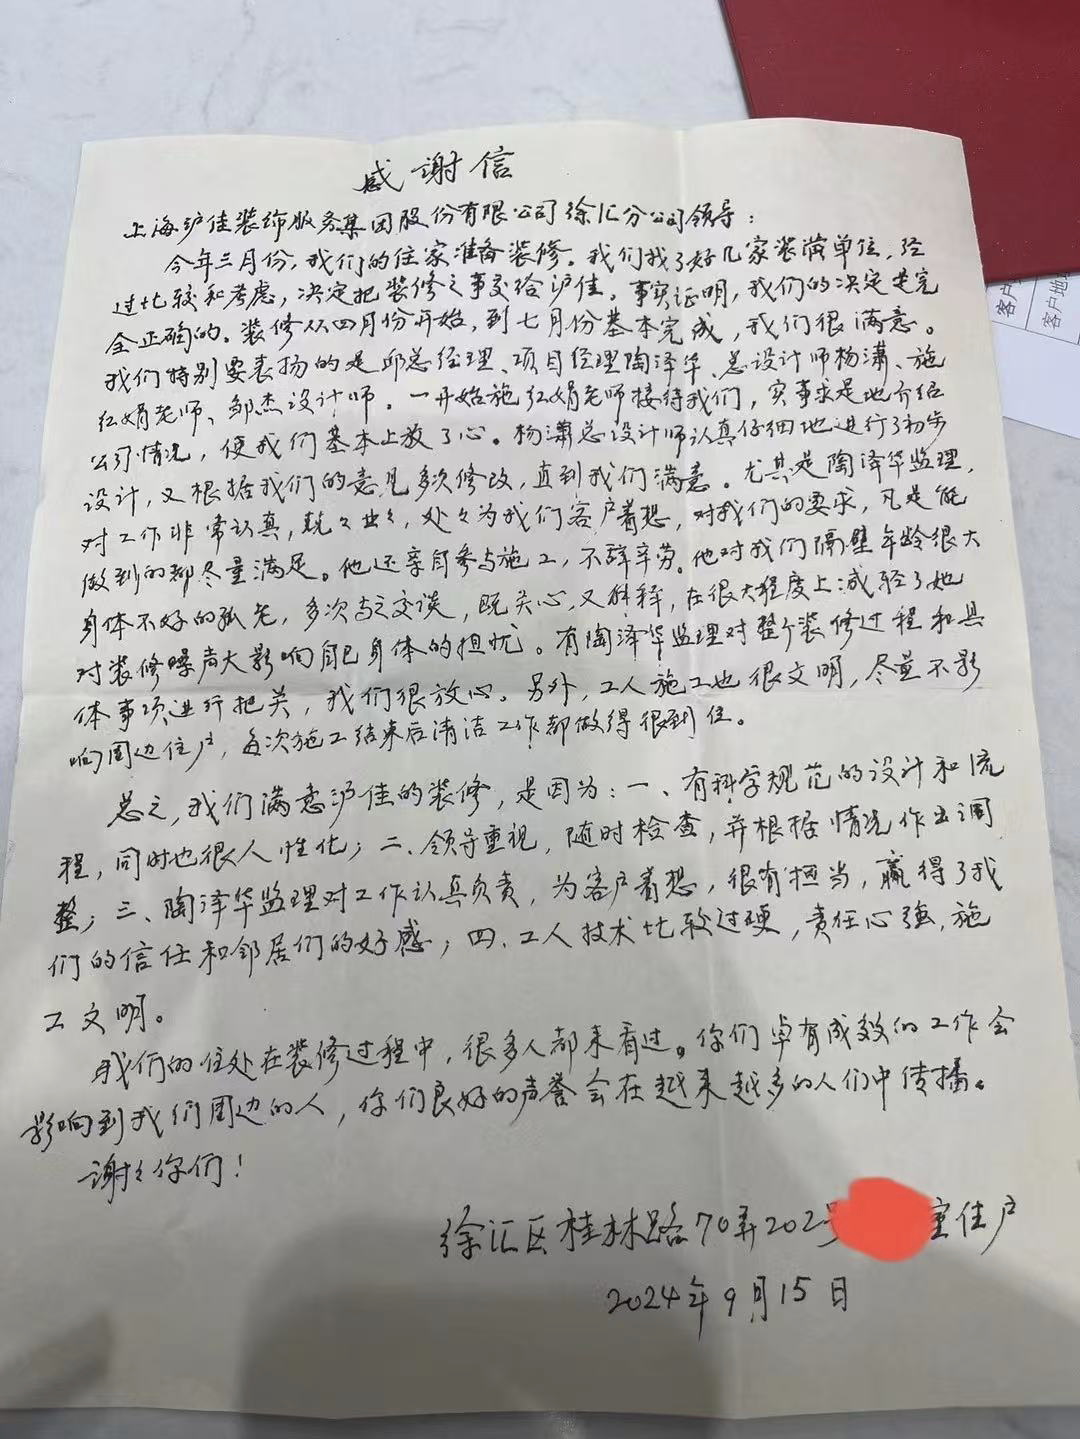 感谢信
上海沪佳装饰服务集团股份有限公司徐汇分公司领导：
今年三月份，我们的住家准备装修。我们找了好几家装潢单位，经
过比较和考虑，决定把装修之事交给沪佳。事实证明，我们的决定是完
全正确的。装修从四月份开始，到七月份基本完成，我们很满意。
我们特别要表扬的是邱总经理、项目经理陶泽华、总设计师杨潇、施
红娟老师、邹杰设计师。一开始施红娟老师接待我们，实事求是地介绍
公司情况，使我们基本上放了心。杨潇总设计师认真仔细地进行了初步
设计，又根据我们的意见多次修改，直到我们满意。尤其是陶泽华监理，
对工作非常认真，兢々业々，处々为我们客户着想，对我们的要求，凡是能
做到的都尽量满足。他还亲自参与施工，不辞辛劳。他对我们隔壁年龄很大
身体不好的孤老，多次与之交谈，既关心，又解释，在很大程度上减轻了她
对装修噪声大影响自己身体的担忧。有陶泽华监理对整个装修过程和具
体事项进行把关，我们很放心。另外，工人施工也很文明，尽量不影
响周边住户，每次施工结束后清洁工作都做得很到位。
总之，我们满意沪佳的装修，是因为：一、有科学规范的设计和流
程，同时也很人性化；二、领导重视，随时检查，并根据情况作出调
整；三、陶泽华监理对工作认真负责，为客户着想，很有担当，赢得了我
们的信任和邻居们的好感；四、工人技术比较过硬，责任心强，施
工文明。
我们的住处在装修过程中，很多人都来看过。你们卓有成效的工作会
影响到我们周边的人，你们良好的声誉会在越来越多的人们中传播。
谢々你们！
徐汇区桂林路70弄202号 室住户
2024年9月15日
客户
客户地